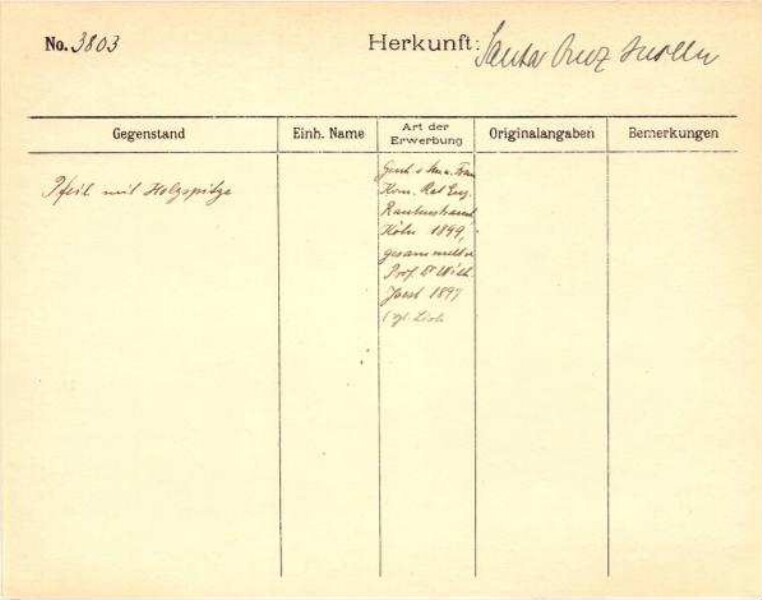 No. 3803
Herkunft: Santa Cruz Inseln
Gegenstand
Einh. Name
Art der Erwerbung
Originalangaben
Bemerkungen
Pfeil mit Holzspitze
Gesch. v. Hn u. Frau
Kom. Rat Eug.
Rautenstrauch
Köln 1899,
gesammelt v.
Prof. Dr Wilh.
Joest 1897